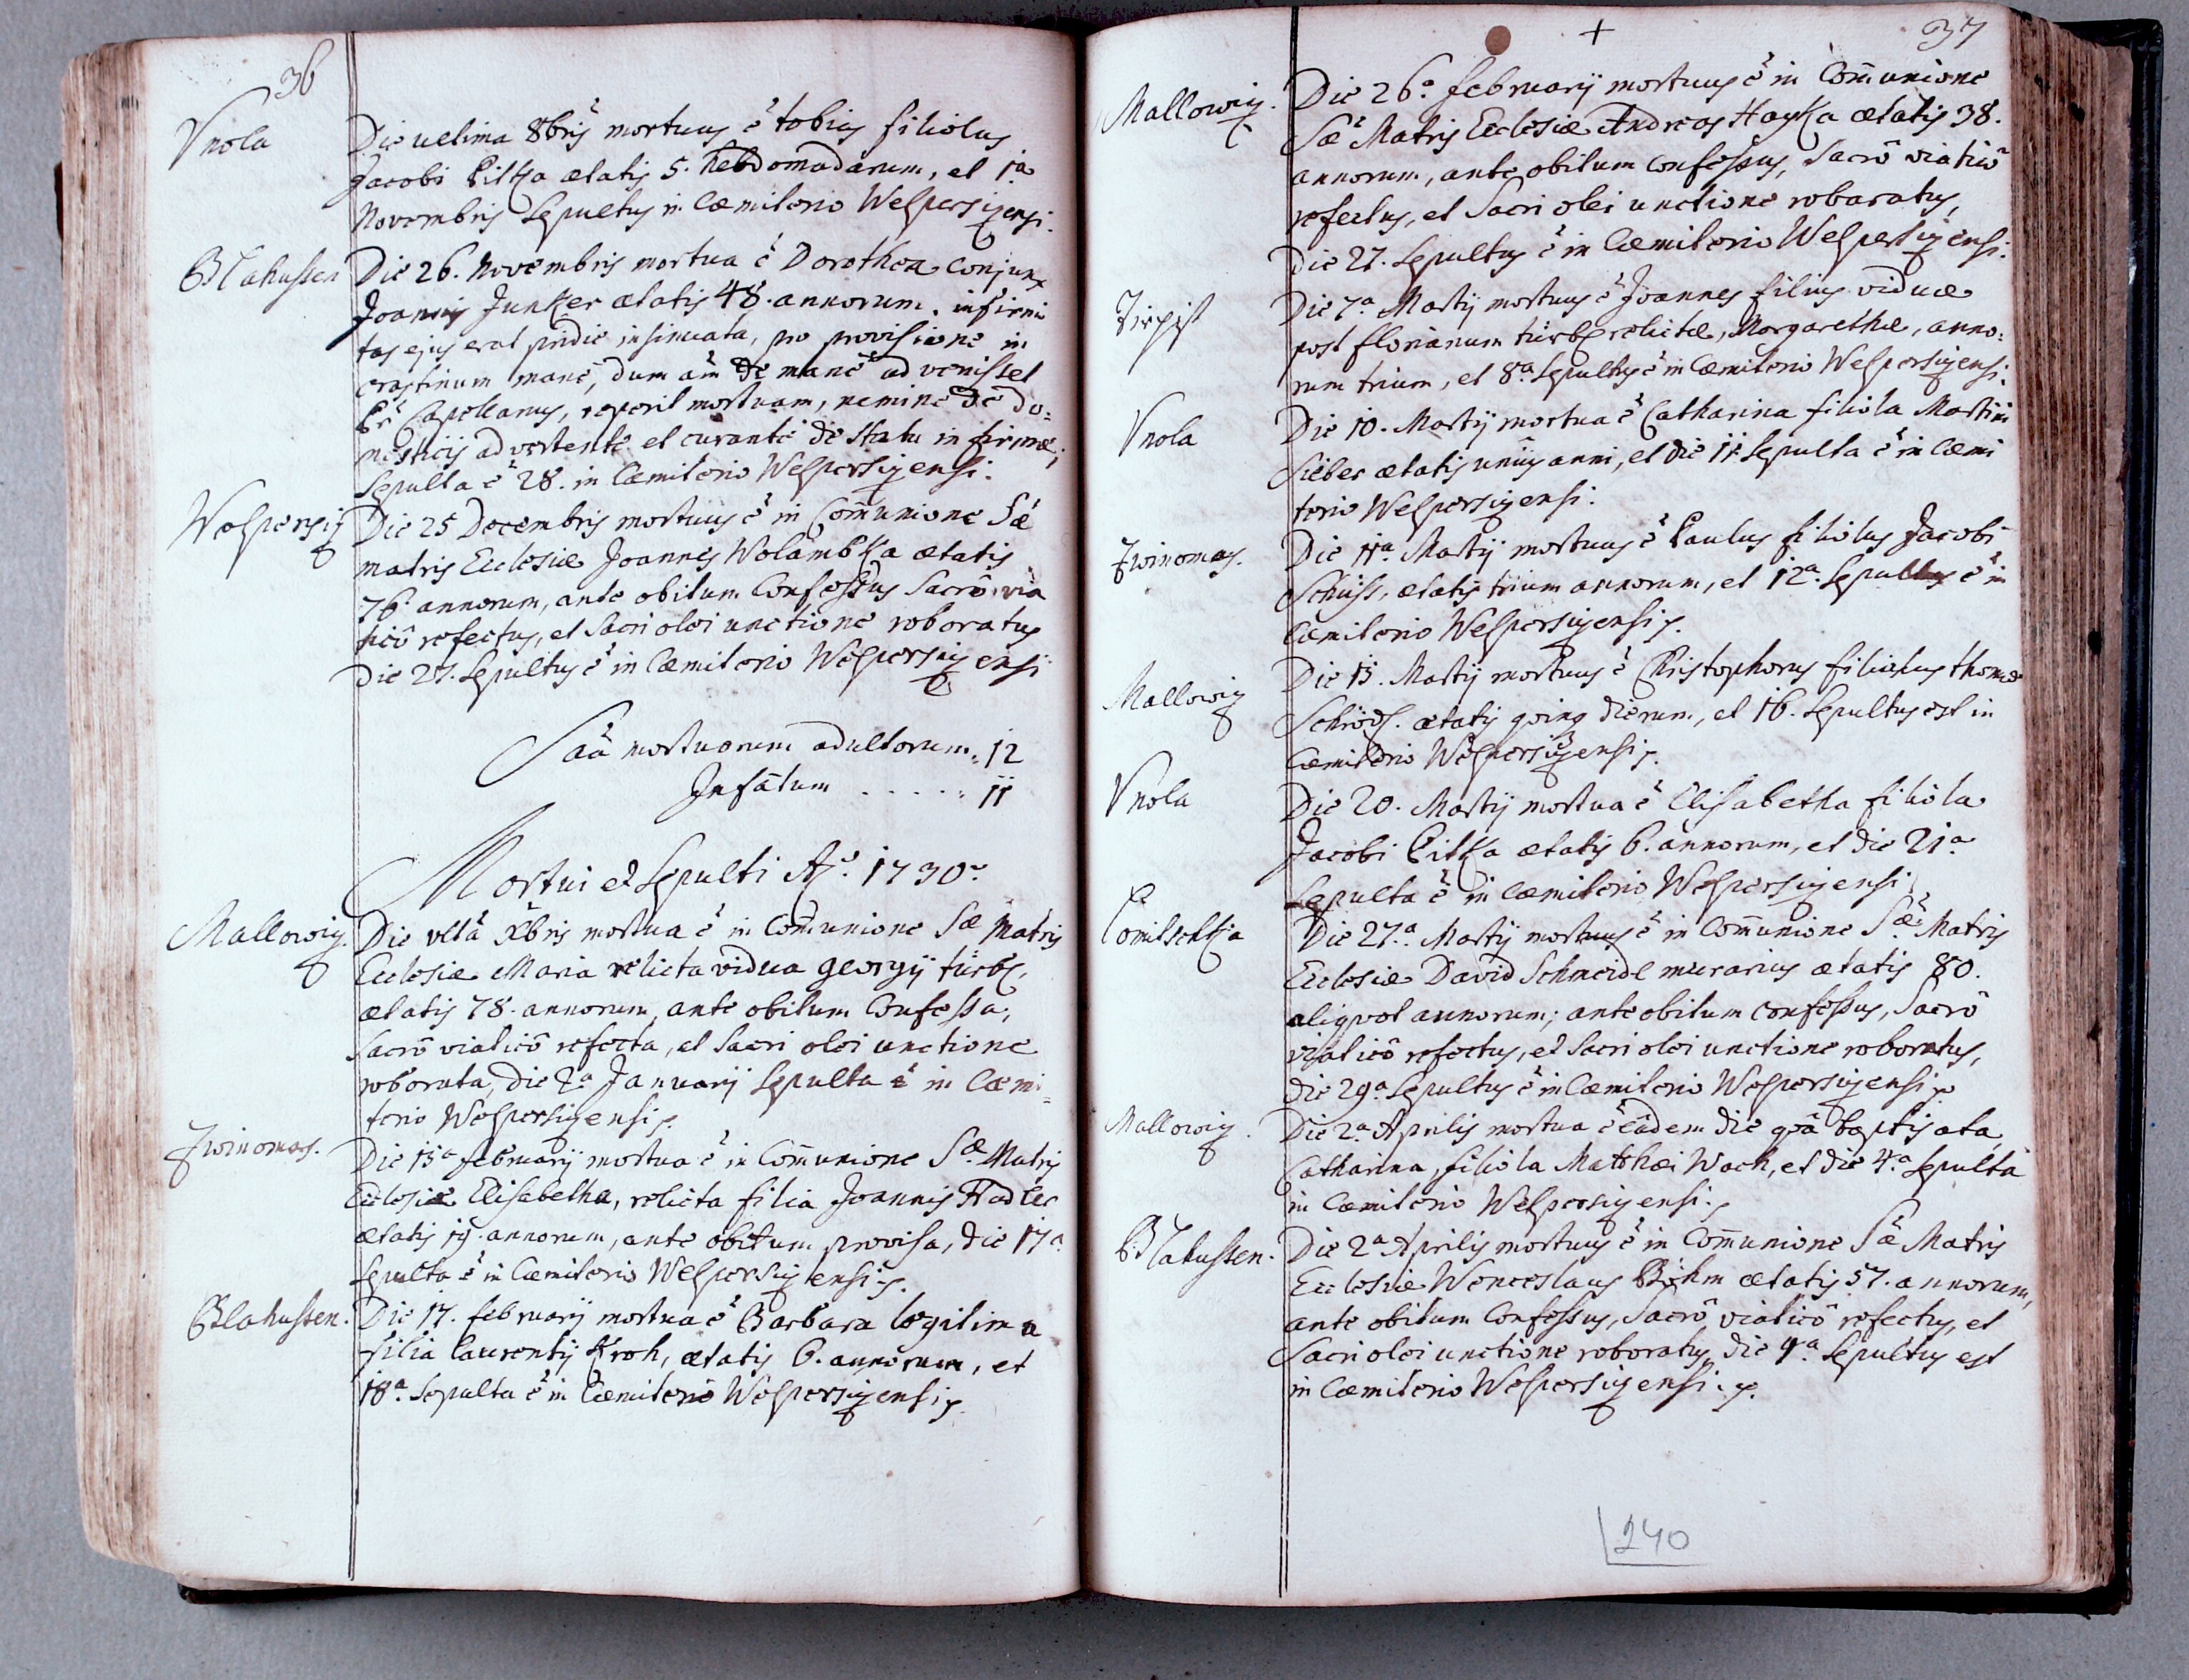 36
Vnola
Die ueltima 8bris mortuus ē tobias filiolus
Jacobi Pitka ætatis 5. hebdomadarum, et 1a
Novembris Sepultus in Cæmiterio Welpersigensi.
Blahussen
Die 26. Novembris mortua ē Dorothea Conjunx
Joannis Junker ætatis 48. annorum. infirmi
tas ejus erat pridie insinuata, pro provisione in
crastinum manè, dum aūm de manè advenisset
Pr Capellanus, reperit mortuam, nemine de do=
mesticis advertente et curante de statu infirmæ;
Sepulta ē 28. in Cæmiterio Welpersigensi.
Welpersig
Die 25 Decembris mortuus ē in Com̄unione Sæ
matris Ecclesiæ Joannes Wolambka ætatis
76. annorum, ante obitum Confessus Sacrô via
ticô refectus, et Sacri olei unctione roboratus
Die 27. Sepultus ē in Cæmiterio Welpersigensi
Saā mortuorum adultorum: 12
Infātum . . . . : 11
Mortui et Sepulti Aō. 1730.
Mallowig.
Die vltā Xbris mortua ē in Com̄unione Sæ Matris
Ecclesiæ Maria relicta vidua georgij türbs,
ætatis 78. annorum, ante obitum Confessa,
Sacrô viaticô refecta, et Sacri olei unctione
roborata, Die 2a Januarij Sepulta ē in Cæmi=
terio Welpersigensi.
Zwinomas.
Die 15a februarij mortua ē in Com̄unione Sæ Matris
Ecclesiæ Elisabetha, relicta filia Joannis Hadler
ætatis 19. annorum, ante obitum provisa, die 17a
Sepulta ē in Cæmiterio Welpersigensi.
Blahussen.
Die 17. februarij mortua ē Barbara legitima
filia Laurentij Kroh, ætatis 6. annorum, et
18a. Sepulta ē in Cæmiterio Welpersigensi.
+
37
Mallowig.
Die 26a februarij mortuus ē in Com̄unione
Sæ Matris Ecclesiæ Andreas Hayka ætatis 38.
annorum, ante obitum confessus, Sacrô viaticô
refectus, et Sacri olei unctione robaratus,
Die 27. Sepultus ē in Cæmiterio Welpersigensi.
Zirpist
Die 7a Martij mortuus ē Joannes filius viduæ
post florianum türbs relictæ, Margarethæ, anno=
rum trium, et 8a Sepultus ē in Cæmiterio Welpersigensi.
Vnola
Die 10. Martij mortua ē Catharina filiola Martini
Sieber ætatis unius anni, et die 11. Sepulta ē in Cæmi
terio Welpersigensi.
Zwinomas.
Die 11a. Martij mortuus ē Paulus filiolus Jacobi
Schüss, ætatis trium annorum, et 12a. Sepultus ē in
Cæmiterio Welpersigensi.
Mallowig
Die 15. Martij mortuus ē Christophorus filiolus thomæ
ætatis dierum, et 16. Sepultus est in
Cæmiterio Welpersigensi.
Vnola
Die 20. Martij mortua ē Elisabetha filiola
Jacobi Pitka ætatis 6. annorum, et die 21a
Sepulta ē in Cæmiterio Welpersigensi
Comitschka
Die 27a. Martij mortuus ē in Com̄unione Sæ Matris
Ecclesiæ David Schmeidl murarius ætatis 80.
aliqvot annorum; ante obitum confessus, Sacrô
viaticô refectus, et Sacri olei unctione roboratus,
die 29a. Sepultus ē in Cæmiterio Welpersigensi
Mallowig.
Die 2a. Aprilis mortua ē eâdem die qvâ baptisata
Catharina, filiola Matthæi Woch, et die 4a. Sepulta
in Cæmiterio Welpersigensi.
Blahussen.
Die 2a Aprilis mortuus ē in Com̄unione Sæ Matris
Ecclesiæ Wenceslaus Böhm ætatis 57. annorum,
ante obitum Confessus, Sacrô viaticô refectus, et
Sacri olei unctione roboratus, die 4a. Sepultus est
in Cæmiterio Welpersigensi.
240